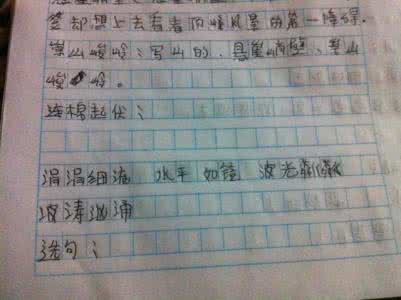 却想上去看看顶峰风景的第一障碍.
崇山峻岭:写山的.悬崖峭壁、崇山
峻岭。
连棉起伏:
涓涓细流 水平如镜 波光粼粼
波涛汹涌
选句: